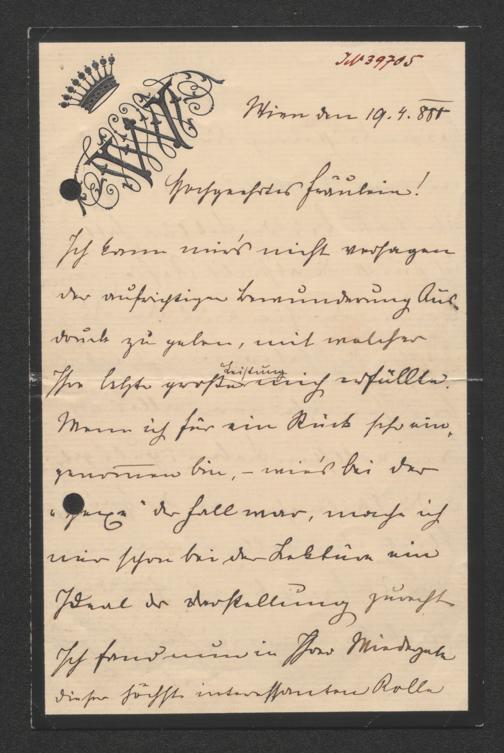 IN 39705
Wien den 19. 4. 88
Hochgeehrtes Fräulein!
Ich kann mir's nicht versagen
der aufrichtigen Bewunderung Aus-
druck zu geben, mit welcher
Ihre letzte große Leistung mich erfüllte.
Wenn ich für ein Stück sehr ein-
genommen bin, – wie's bei der
" " der Fall war, mache ich
mir schon bei der Lektüre ein
Ideal der Darstellung zurecht
Ich fand nun in Ihrer Wiedergabe
dieser höchst interessanten Rolle